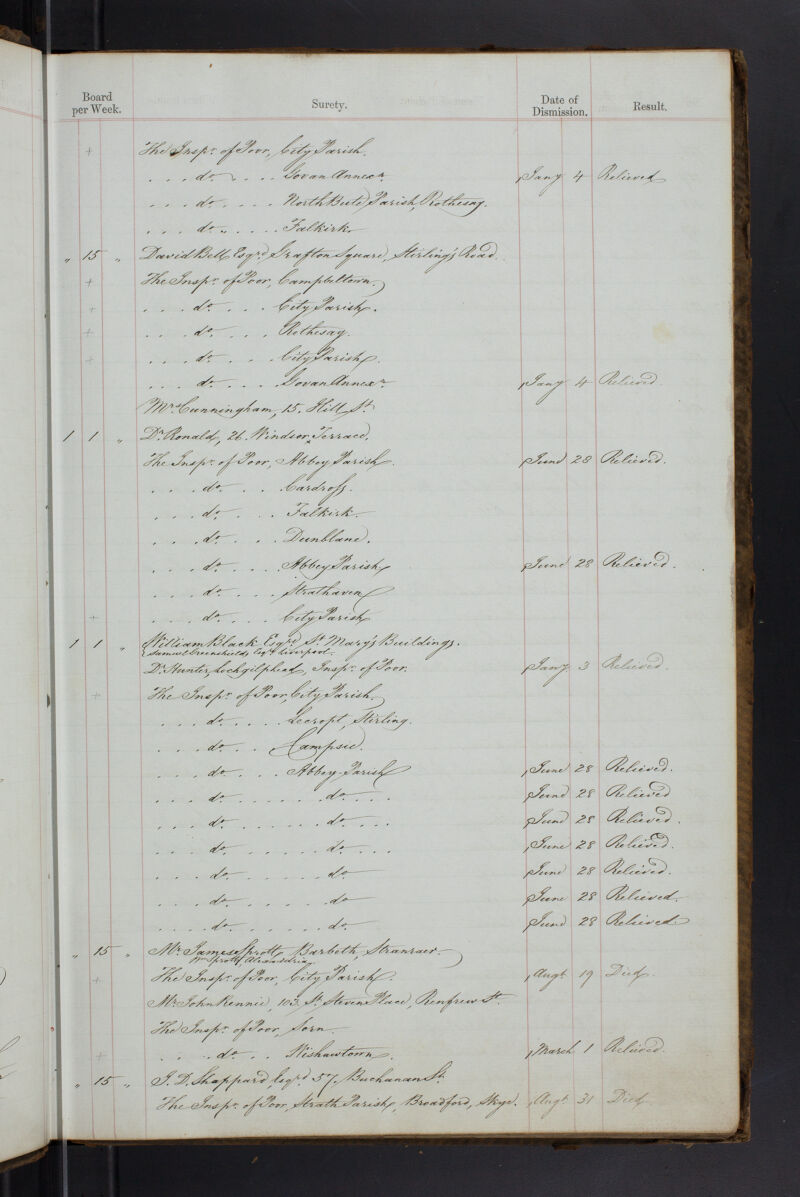 Board per Week. Surety. Date of Dismission. Result.
+ The Inspr. of Poor, City Parish.
. . . do . . . Govan Annexn. Jany 4 Relieved
. . . do . . . . North Bute Parish, Rothesay.
. . . do " . . . . Falkirk
" 15 " David Bell Esqre. Grafton Square, Stirling's Road.
+ The Inspr. of Poor, Campbeltown.
+ . . . do . . . City Parish.
+ . . . do . . . . Rothesay.
+ . . . do . . . City Parish.
. . . do . . . . Govan Annexn. Jany 4 Relieved.
Mrs. Cunningham, 15, Hill St.
1 1 " Dr. Ronald, 26 Windsor Terrace.
The Inspr. of Poor, Abbey Parish. June 28 Relieved.
. . . do . . . Cardross.
. . . do . . . Falkirk.
. . . do . . . Dunblane.
. . . do . . . . Abbey Parish, June 28 Relieved.
. . . do . . . . Strathaven
+ . . . do . . . . City Parish
1 1 " William Black Esqre. St. Mary's Buildings.
Samuel Greenshields, Esqre. Liverpool.
Dr. Hunter, Lochgilphead, Inspr. of Poor. Jany 3 Relieved.
+ The Inspr. of Poor, City Parish,
. . . do . . . . Lecropt, Stirling.
. . . do . . . Campsie.
. . . do . . . . Abbey Parish June 28 Relieved.
. . . do . . . . . . . do . . . . June 28 Relieved
. . . do . . . . . . . do . . . . June 28 Relieved.
. . . do . . . . . . . do . . . June 28 Relieved.
. . . do . . . . . . . do June 28 Relieved.
. . . do . . . . . . . do June 28 Relieved.
. . . do . . . . . . . do. June 28 Relieved
" 15 " Mr. James Sprott, Barbeth, Stranraer.
Wm. Sprott, Alexandria
+ The Inspr. of Poor, City Parish. Augt. 19 Died.
Mr. John Rennie, 103, St. Steven Place, Renfrew St.
The Inspr. of Poor, Sorn.
+ . . . do . . . Wishawtown. March 1 Relieved.
" 15 " J. D. Shappard, Esqre. 57, Buchanan St.
The Inspr. of Poor, Strath Parish, Broadford, Skye. Augt. 31 Died.